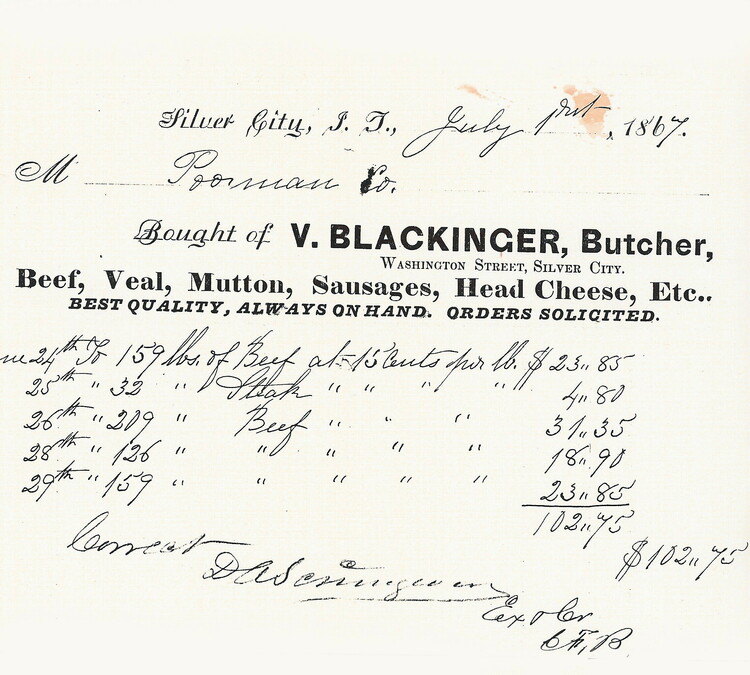 Silver City, I. T., July 1st, 1867.
M Poorman Co.
Bought of V. BLACKINGER, Butcher,
WASHINGTON STREET, SILVER CITY.
Beef, Veal, Mutton, Sausages, Head Cheese, Etc..
BEST QUALITY, ALWAYS ON HAND. ORDERS SOLICITED.
ne 24th To 159 lbs. of Beef at 15 Cents per lb. $ 23,,85
25th " 32 " Steak " " " " 4,,80
26th " 209 " Beef " " " 31,,35
28th " 126 " " " " " 18,,90
29th " 159 " " " " " 23,,85
102,,75
$102,,75
Correct